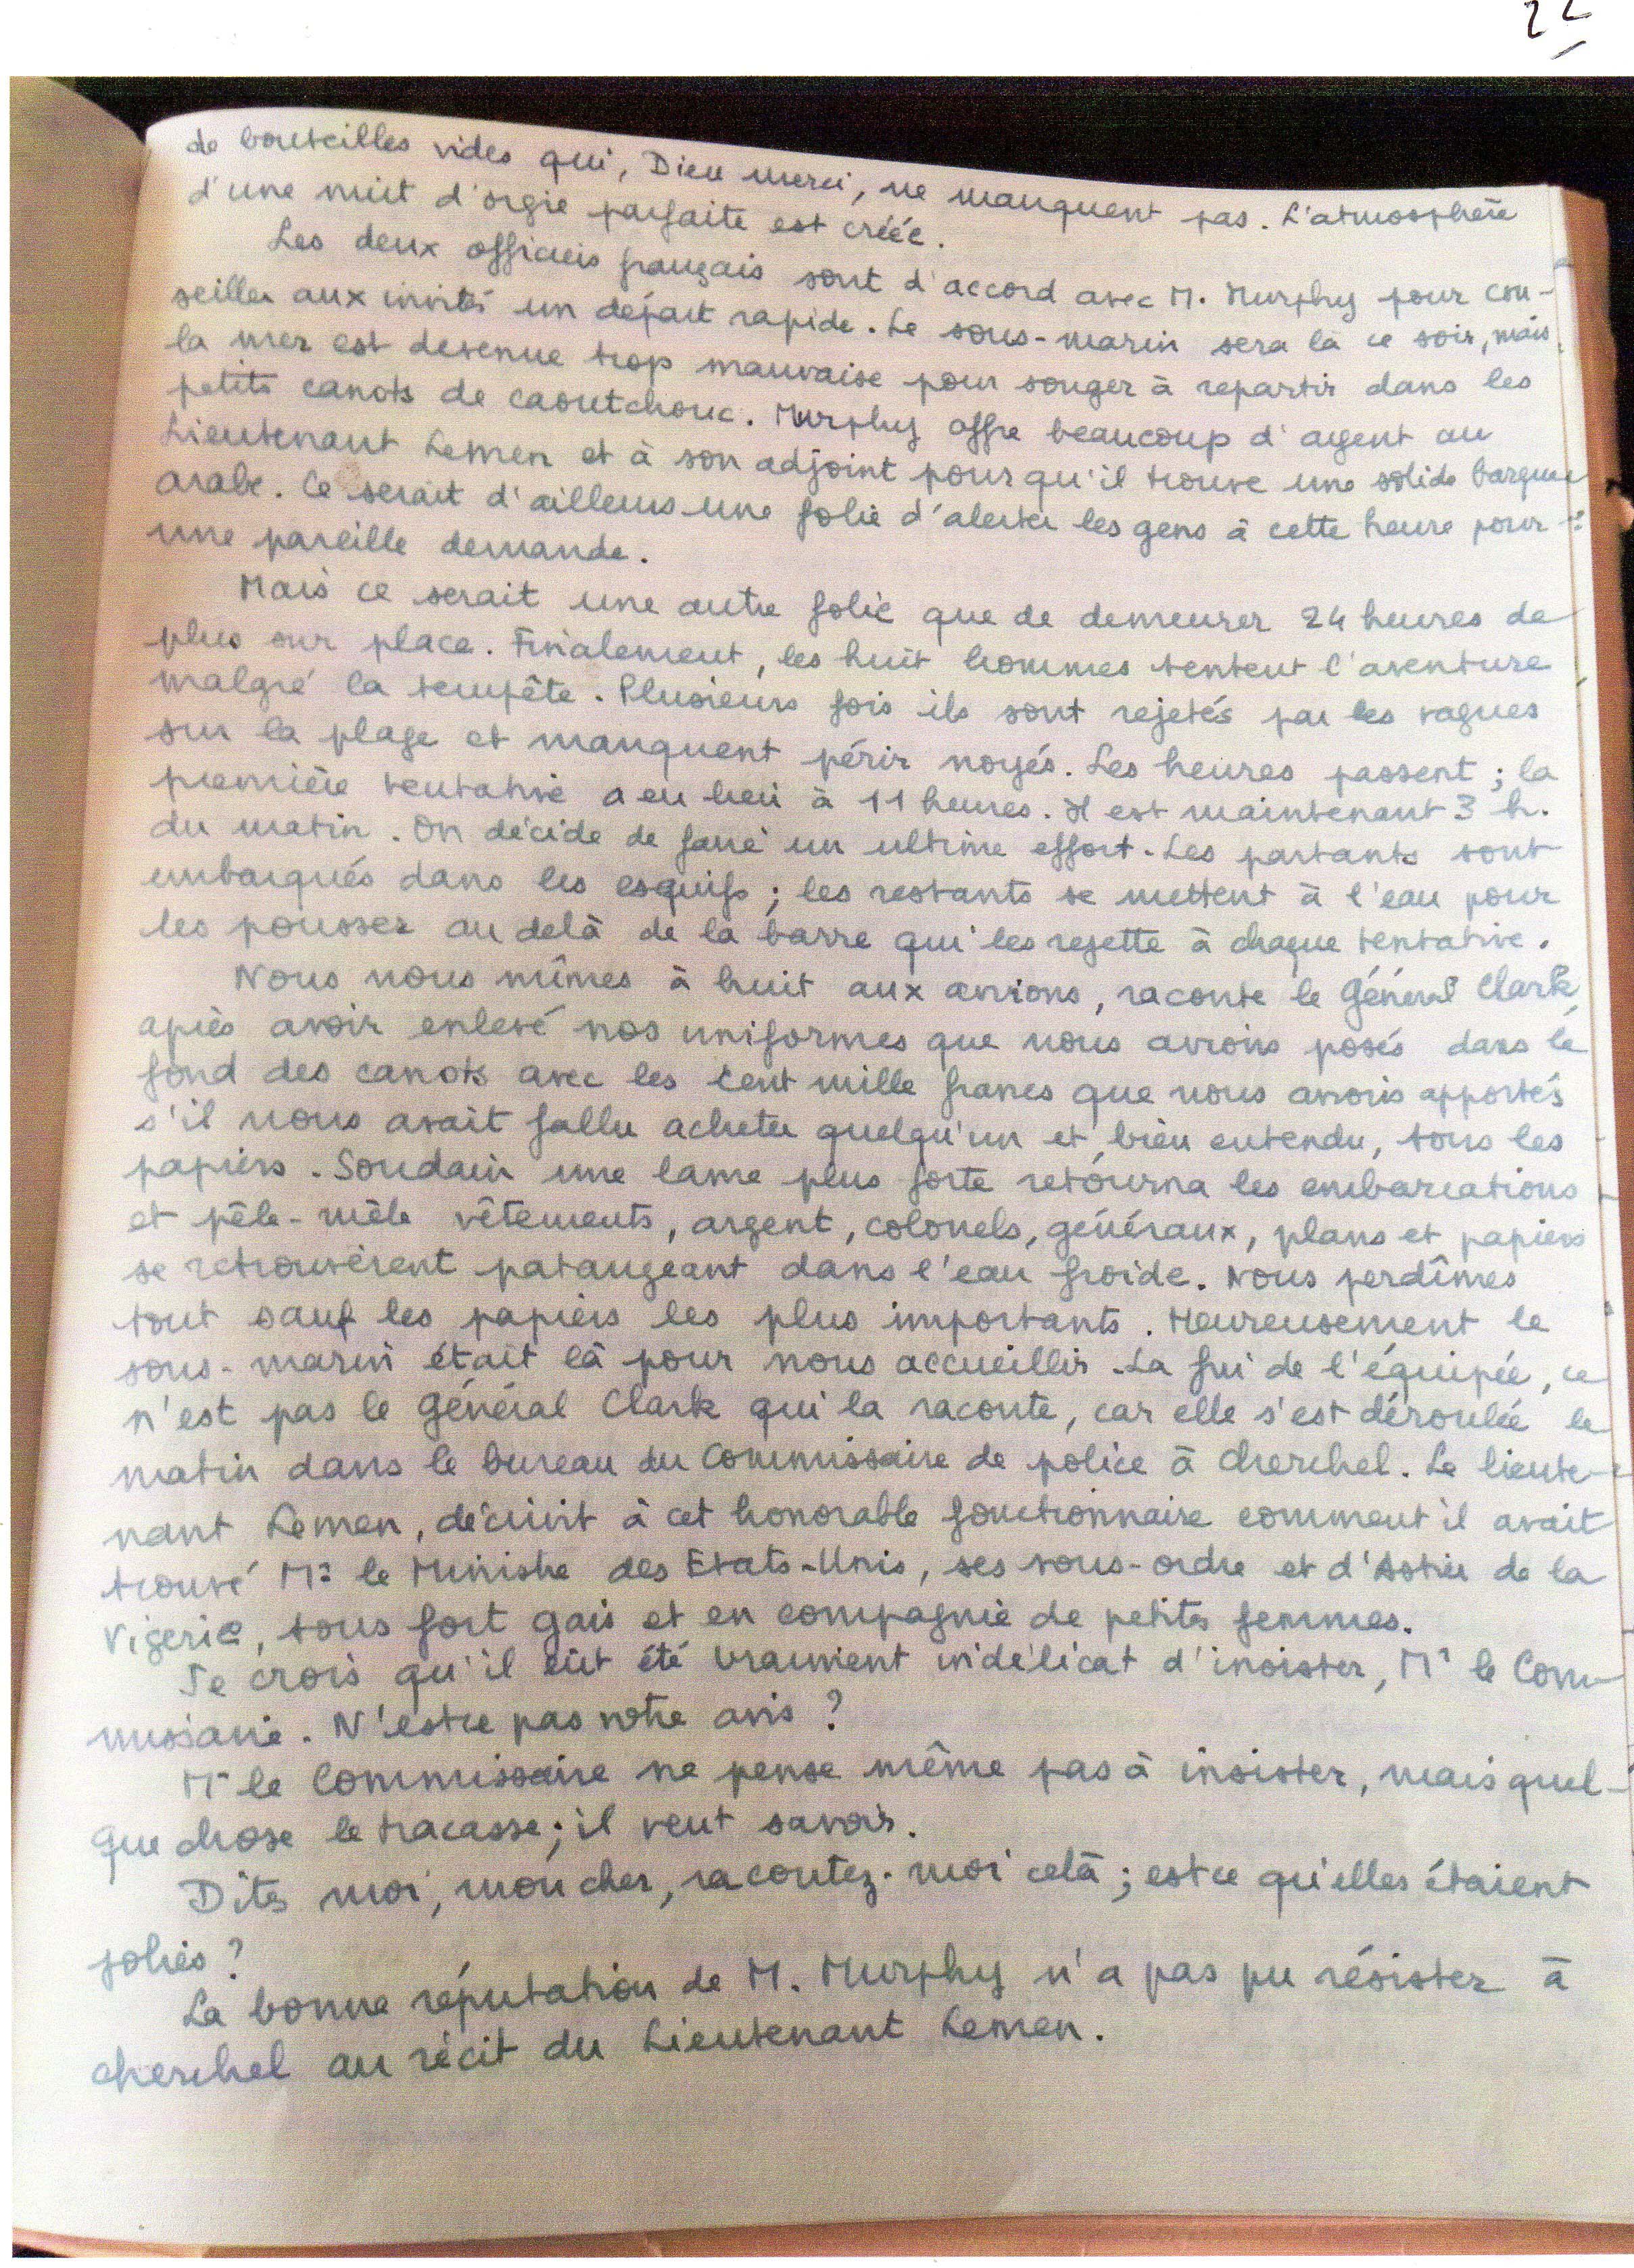 22
de bouteilles vides qui, Dieu merci, ne manquent pas. L'atmosphère
d'une nuit d'orgie parfaite est créée.
Les deux officiers français sont d'accord avec M. Murphy pour con-
seiller aux invités un départ rapide. Le sous-marin sera là ce soir, mais
la mer est devenue trop mauvaise pour songer à repartir dans les
petits canots de caoutchouc. Murphy offre beaucoup d'argent au
Lieutenant Lemen et à son adjoint pour qu'il trouve une solide barque
arabe. Ce serait d'ailleurs une folie d'alerter les gens à cette heure pour
une pareille demande.
Mais ce serait une autre folie que de demeurer 24 heures de
plus sur place. Finalement, les huit hommes tentent l'aventure
malgré la tempête. Plusieurs fois ils sont rejetés par les vagues
sur la plage et manquent périr noyés. Les heures passent ; la
première tentative a eu lieu à 11 heures. Il est maintenant 3 h.
du matin. On décide de faire un ultime effort. Les partants sont
embarqués dans les esquifs ; les restants se mettent à l'eau pour
les pousser au delà de la barre qui les rejette à chaque tentative.
Nous nous mîmes à huit aux avirons, raconte le Général Clark,
après avoir enlevé nos uniformes que nous avions posés dans le
fond des canots avec les cent mille francs que nous avions apportés
s'il nous avait fallu acheter quelqu'un et, bien entendu, tous les
papiers. Soudain une lame plus forte retourna les embarcations
et pêle-mêle vêtements, argent, colonels, généraux, plans et papiers
se retrouvèrent pataugeant dans l'eau froide. Nous perdîmes
tout sauf les papiers les plus importants. Heureusement le
sous-marin était là pour nous accueillir. La fin de l'équipée, ce
n'est pas le Général Clark qui la raconte, car elle s'est déroulée le
matin dans le bureau du Commissaire de police à Cherchel. Le lieute-
nant Lemen, décrivit à cet honorable fonctionnaire comment il avait
trouvé Mr le Ministre des Etats-Unis, ses sous-ordre et d'Astier de la
Vigerie, tous fort gais et en compagnie de petites femmes.
Je crois qu'il eût été vraiment indélicat d'insister, Mr le Com-
missaire. N'est ce pas votre avis ?
Mr le Commissaire ne pense même pas à insister, mais quel-
que chose le tracasse ; il veut savoir.
Dites moi, mon cher, racontez-moi celà ; est ce qu'elles étaient
jolies ?
La bonne réputation de M. Murphy n'a pas pu résister à
cherchel au récit du Lieutenant Lemen.